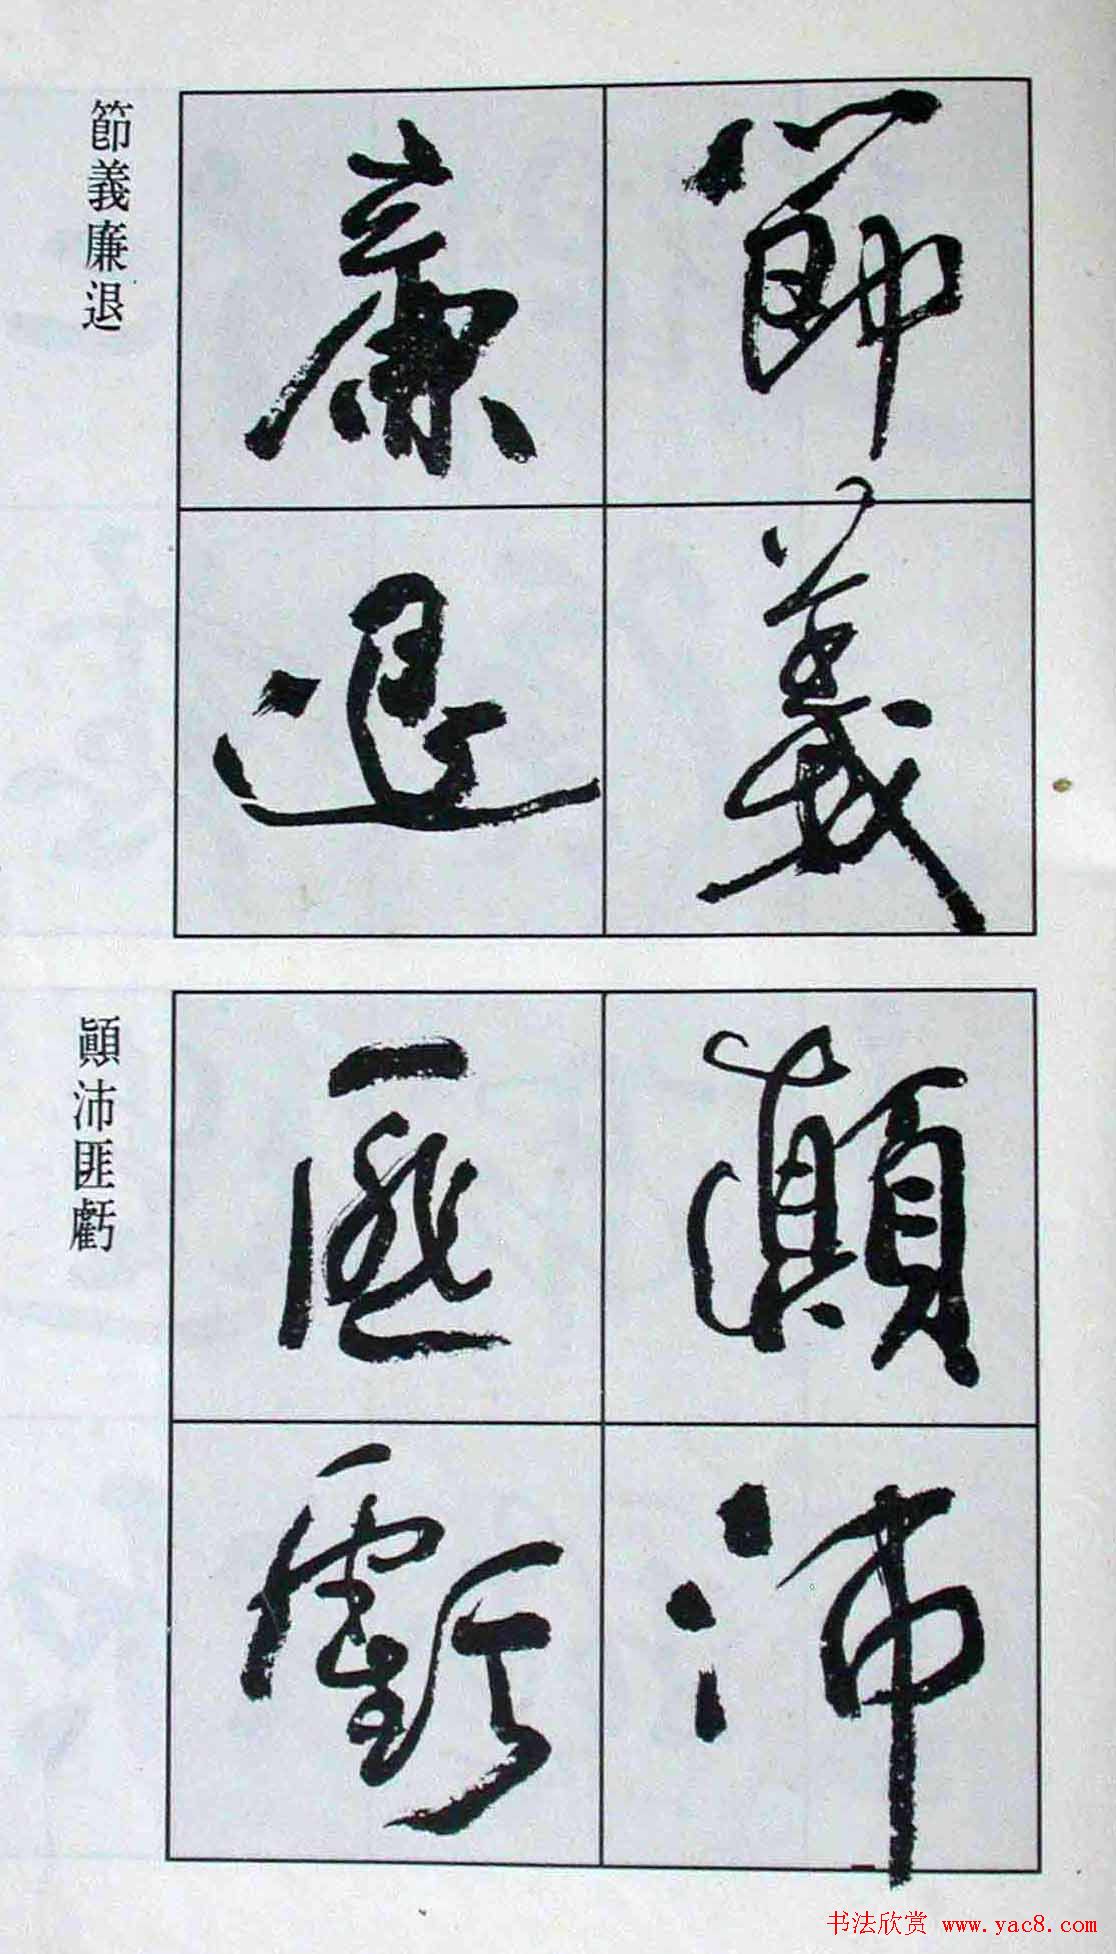 節義
廉退
節義廉退
顛沛
匪虧
顛沛匪虧
书法欣赏 www.yac8.com